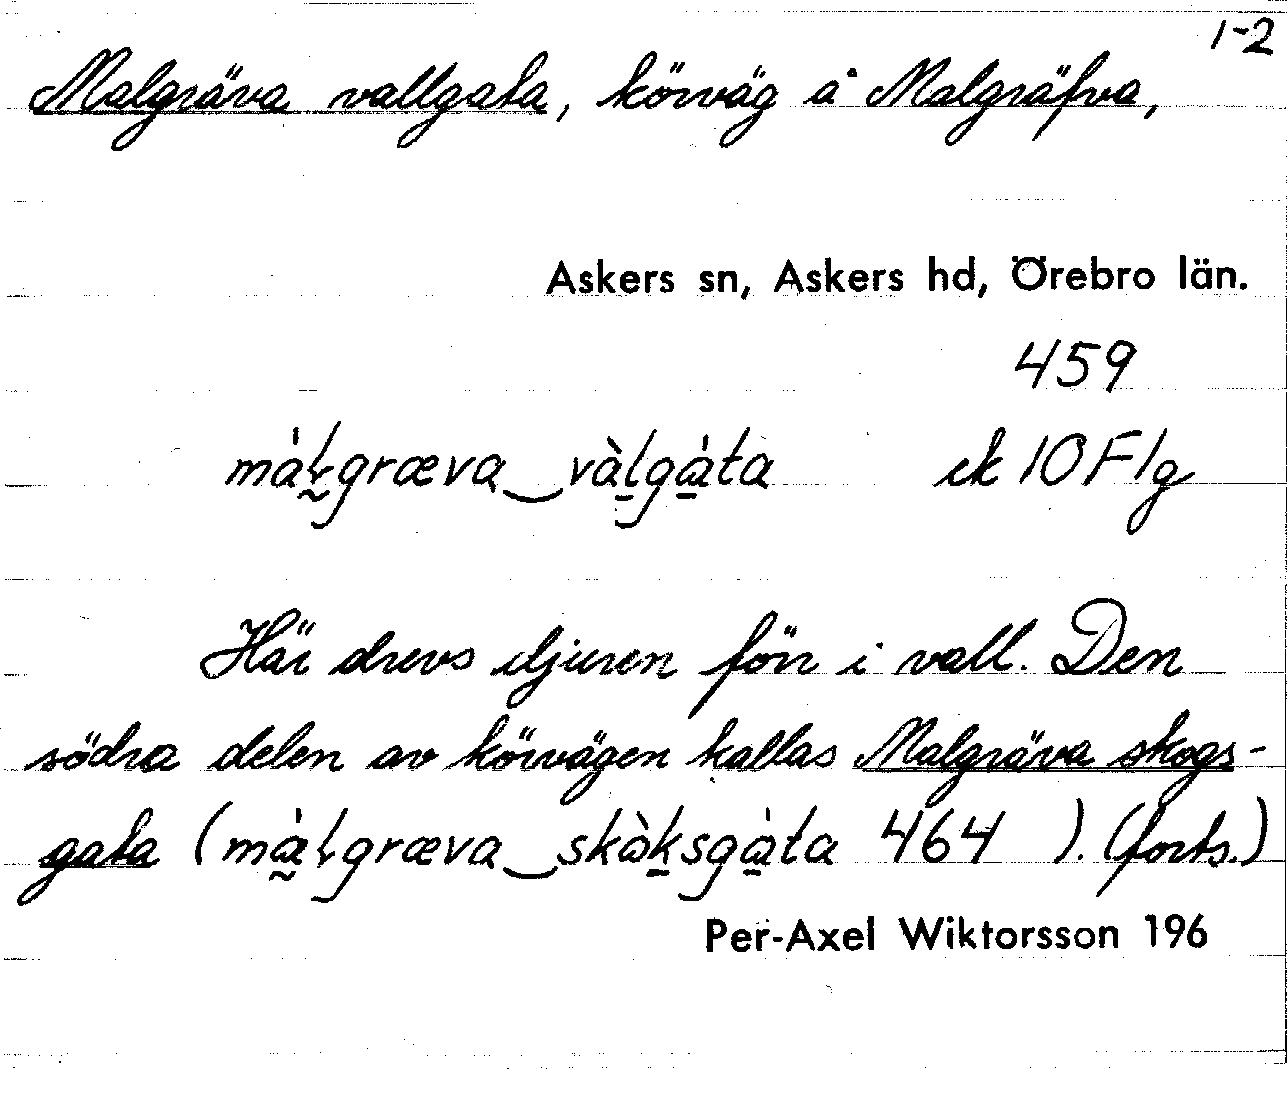 1-2
Malgräva vallgata, körväg å Malgräfva,
Askers sn, Askers hd, Örebro län.
459
màɫgræva‿vàlgàta ek 10 F 1g
Här drevs djuren förr i vall. Den
södra delen av körvägen kallas Malgräva skogs-
gata (màɫgræva‿skàksgàta 464 ). (forts.)
Per-Axel Wiktorsson 196